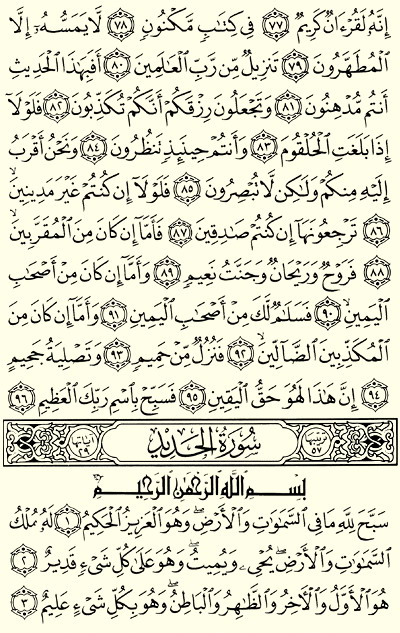 إِنَّهُۥ لَقُرْءَانٌ كَرِيمٌ ٧٧ فِى كِتَٰبٍ مَّكْنُونٍ ٧٨ لَّا يَمَسُّهُۥٓ إِلَّا
ٱلْمُطَهَّرُونَ ٧٩ تَنزِيلٌ مِّن رَّبِّ ٱلْعَٰلَمِينَ ٨٠ أَفَبِهَٰذَا ٱلْحَدِيثِ
أَنتُم مُّدْهِنُونَ ٨١ وَتَجْعَلُونَ رِزْقَكُمْ أَنَّكُمْ تُكَذِّبُونَ ٨٢ فَلَوْلَآ
إِذَا بَلَغَتِ ٱلْحُلْقُومَ ٨٣ وَأَنتُمْ حِينَئِذٍ تَنظُرُونَ ٨٤ وَنَحْنُ أَقْرَبُ
إِلَيْهِ مِنكُمْ وَلَٰكِن لَّا تُبْصِرُونَ ٨٥ فَلَوْلَآ إِن كُنتُمْ غَيْرَ مَدِينِينَ
٨٦ تَرْجِعُونَهَآ إِن كُنتُمْ صَٰدِقِينَ ٨٧ فَأَمَّآ إِن كَانَ مِنَ ٱلْمُقَرَّبِينَ
٨٨ فَرَوْحٌ وَرَيْحَانٌ وَجَنَّتُ نَعِيمٍ ٨٩ وَأَمَّآ إِن كَانَ مِنْ أَصْحَٰبِ
ٱلْيَمِينِ ٩٠ فَسَلَٰمٌ لَّكَ مِنْ أَصْحَٰبِ ٱلْيَمِينِ ٩١ وَأَمَّآ إِن كَانَ مِنَ
ٱلْمُكَذِّبِينَ ٱلضَّآلِّينَ ٩٢ فَنُزُلٌ مِّنْ حَمِيمٍ ٩٣ وَتَصْلِيَةُ جَحِيمٍ
٩٤ إِنَّ هَٰذَا لَهُوَ حَقُّ ٱلْيَقِينِ ٩٥ فَسَبِّحْ بِٱسْمِ رَبِّكَ ٱلْعَظِيمِ ٩٦
ترتيبها ٥٧ سُورَةُ الْحَدِيدِ آياتها ٢٩
بِسْمِ ٱللَّهِ ٱلرَّحْمَٰنِ ٱلرَّحِيمِ
سَبَّحَ لِلَّهِ مَا فِى ٱلسَّمَٰوَٰتِ وَٱلْأَرْضِ ۖ وَهُوَ ٱلْعَزِيزُ ٱلْحَكِيمُ ١ لَهُۥ مُلْكُ
ٱلسَّمَٰوَٰتِ وَٱلْأَرْضِ ۖ يُحْىِۦ وَيُمِيتُ ۖ وَهُوَ عَلَىٰ كُلِّ شَىْءٍ قَدِيرٌ ٢
هُوَ ٱلْأَوَّلُ وَٱلْءَاخِرُ وَٱلظَّٰهِرُ وَٱلْبَاطِنُ ۖ وَهُوَ بِكُلِّ شَىْءٍ عَلِيمٌ ٣